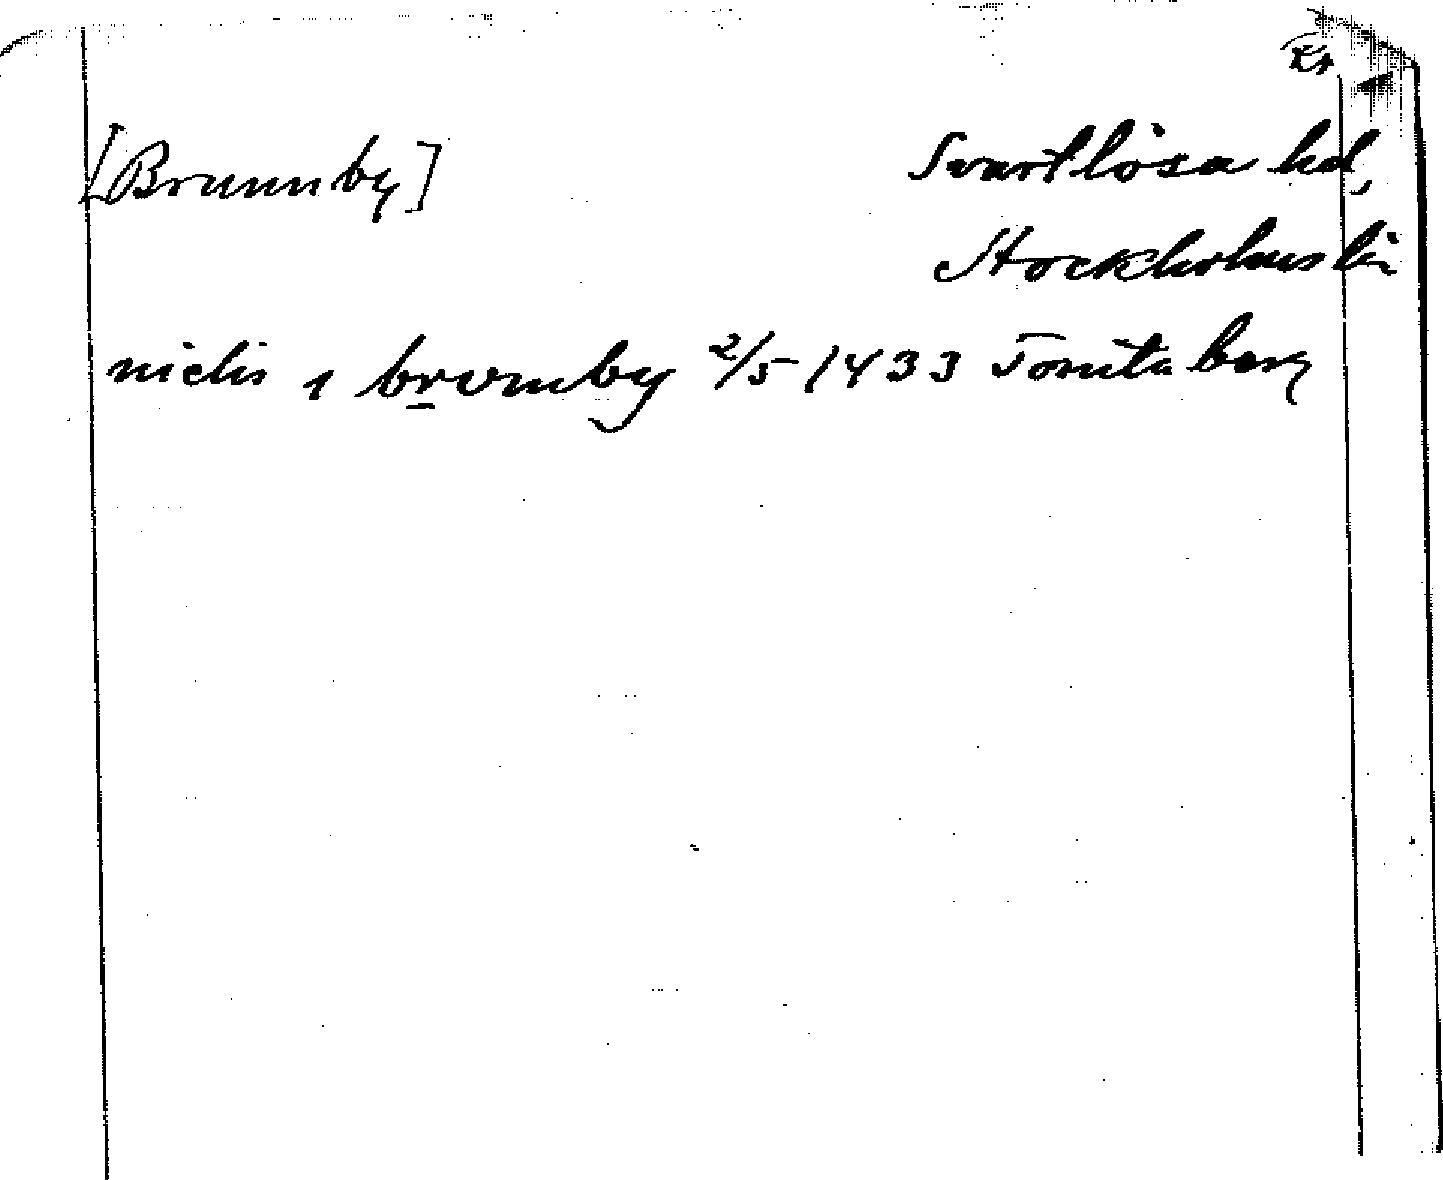 [Brunnby] Svartlösa hd,
Stockholms län
nielis i brvmby 2/5 1433 Tomta berg